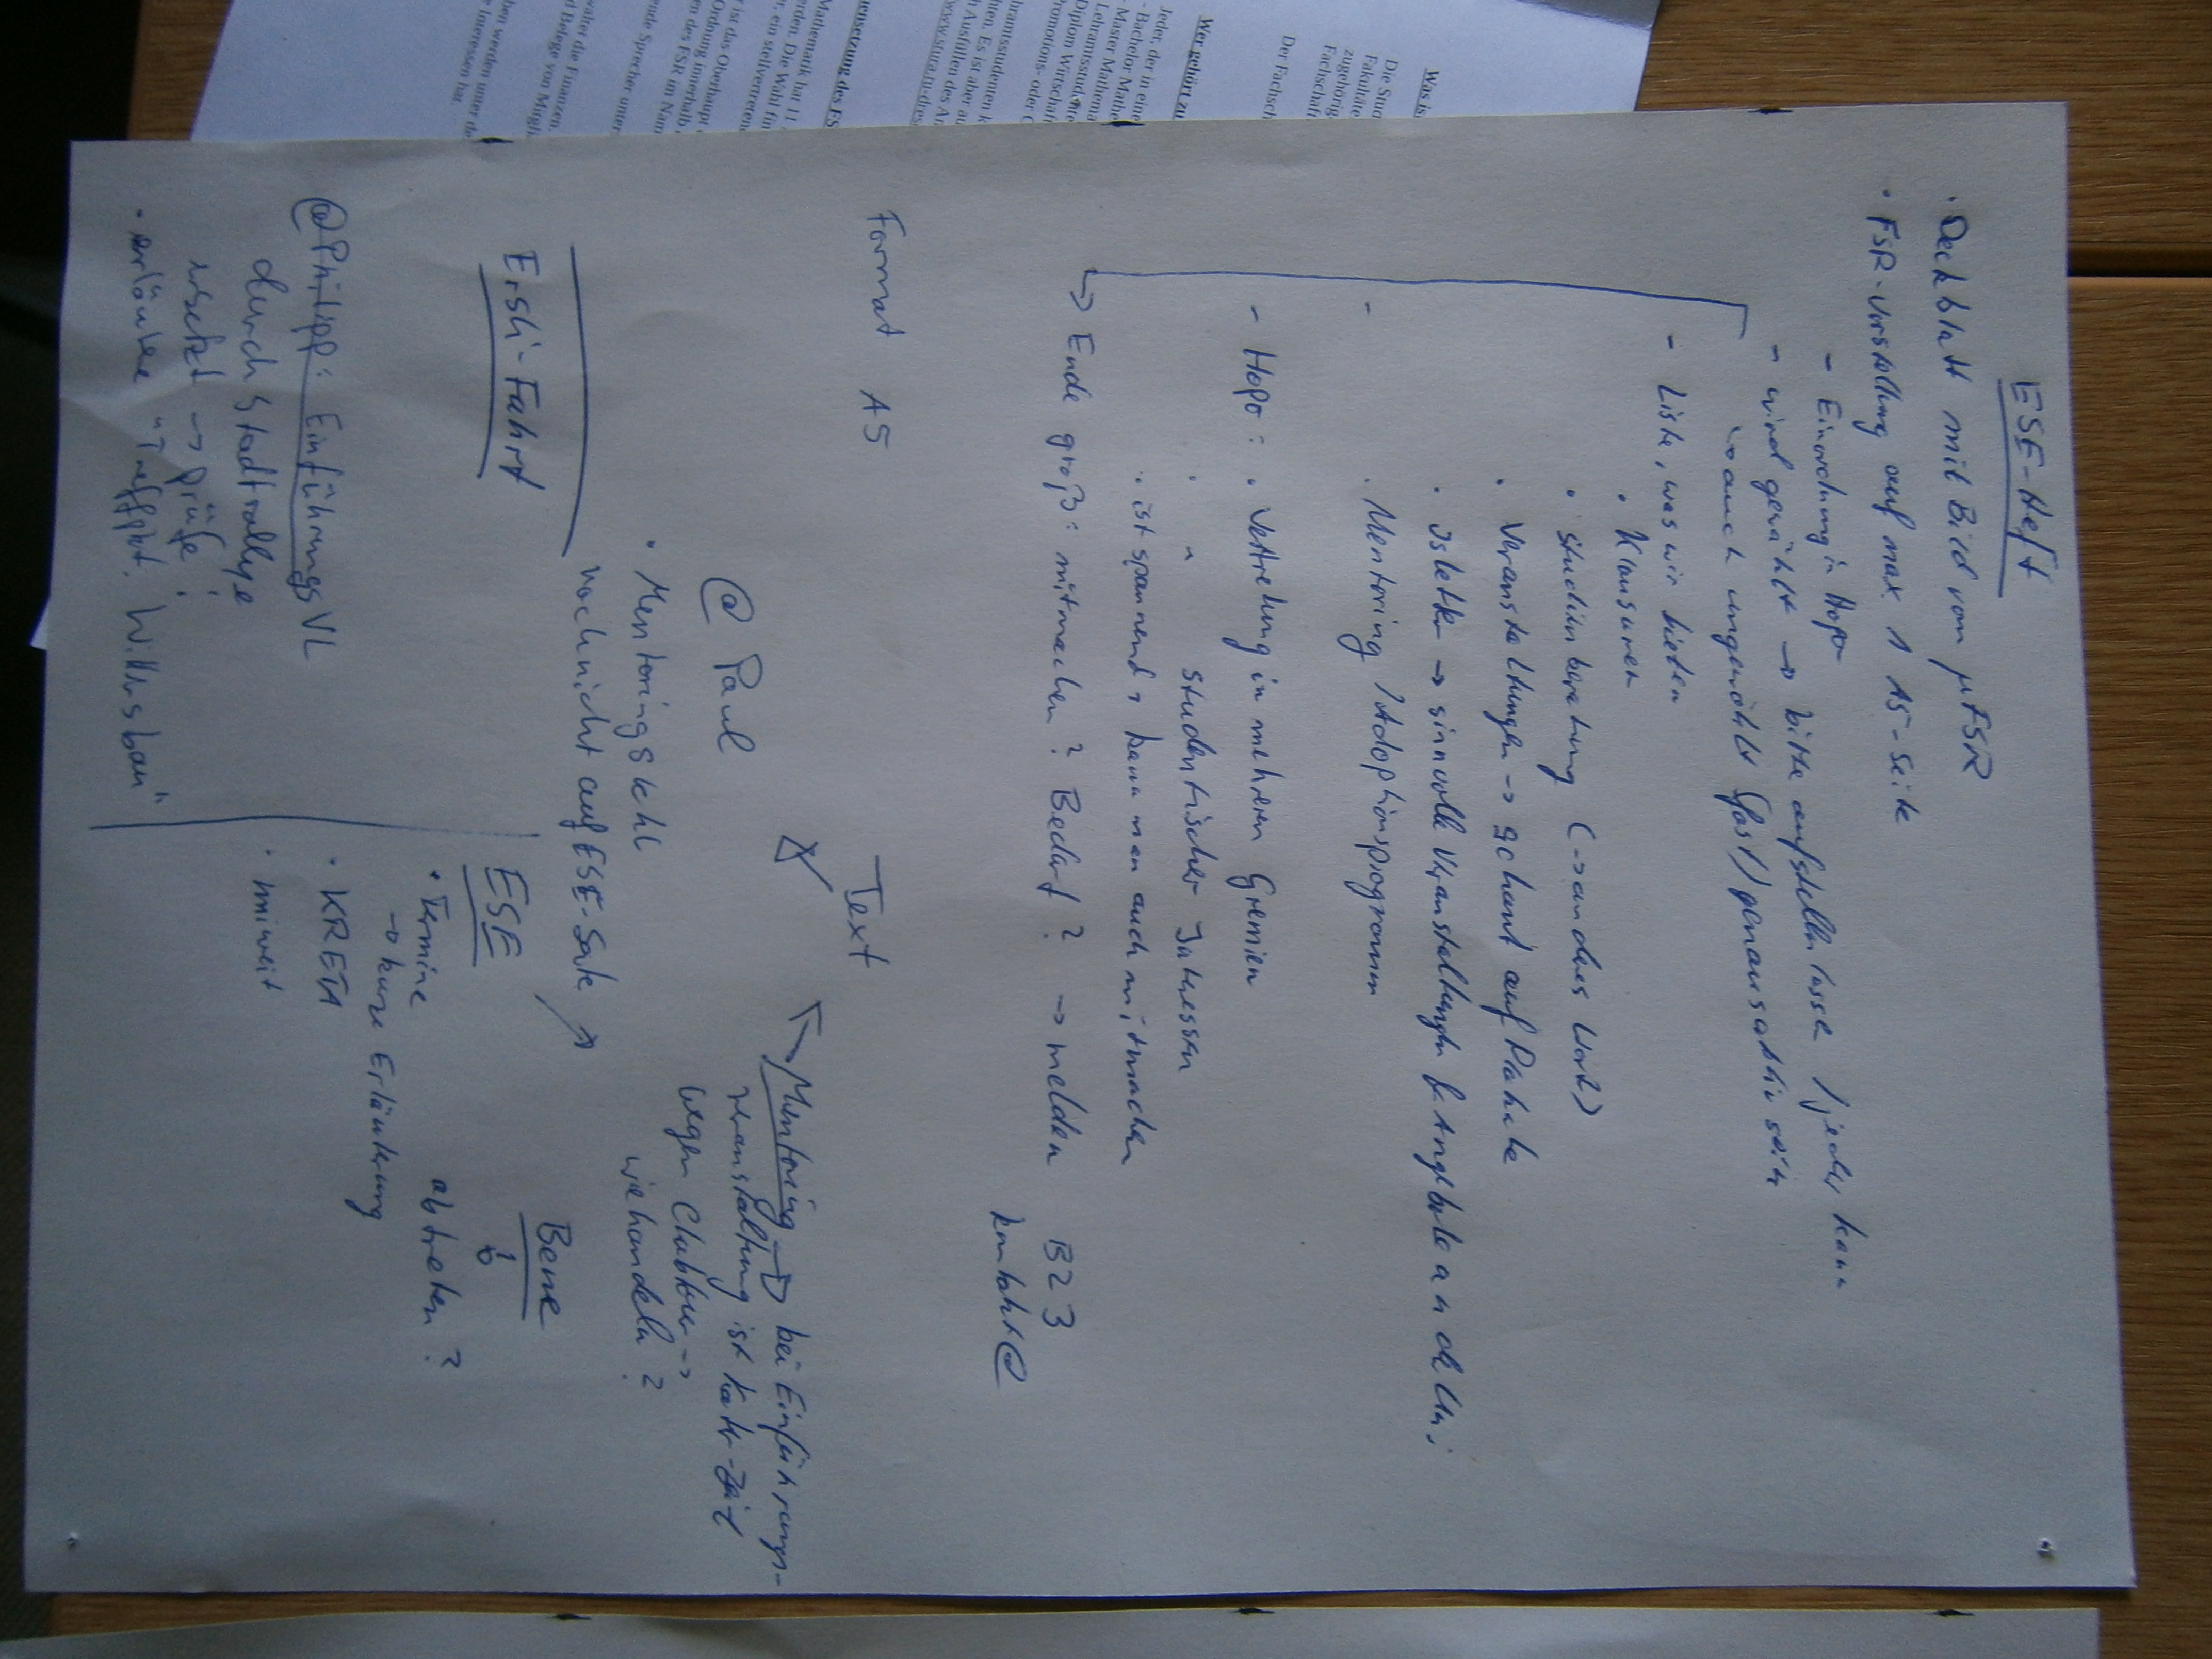 ESE-Heft
· Deckblatt mit Bild vom µFSR
· FSR-Vorstellung auf max. 1 A5-Seite
- Einordnung in Hopo
- wird gewählt → bitte aufstellen lassen / jeder kann
↳ auch ungewählt (fast) genausoaktiv sein
- Liste, was wir bieten
· Klausuren
· Studienberatung (→ anderes Wort)
· Veranstaltungen → schaut auf Plakate
· → sinnvolle Veranstaltungen & Angebote an der Uni
- · Mentoring / Adoptionsprogramm
- Hopo: · Vertretung in mehreren Gremien
· " studentischer Interessen
· ist spannend, kann man auch mitmachen
→ Ende groß: mitmachen? Bedarf? → melden B23
kontakt@
Format A5
Text
@ Paul
· Mentoring fehlt
noch nicht auf ESE-Seite
Mentoring → bei Einführungs-
veranstaltung ist Kater-Zeit
wegen Clubtour →
wie handeln?
Bene
↓
abtreten?
Ersti-Fahrt
@Philipp: EinführungsVL
durch Stadtrallye
ersetzt → prüfe!
· erläutere "Treffpkt. Willersbau"
ESE
· Termine
→ kurze Erläuterung
· KRETA
· uniweit
Was is
Die Stud
Fakultäte
zugehörig
Fachschaft
Der Fachsch
Wer gehört zu
Jeder, der in eine
- Bachelor Mathe
- Master Mathema
Lehramtsstudente
Diplom Wirtschaft
Promotions- oder
hramtsstudenten k
hten. Es ist aber au
h Ausfüllen des An
www.stura.tu-dres
ensetzung des FS
Mathematik hat 11
erden. Die Wahl fin
r, ein stellvertreten
ist das Oberhaupt
Ordnung innerhalb
en des FSR im Nam
ende Sprecher unter
waltet die Finanzen.
d Belege von Mitgli
ben werden unter de
e Interessen hat.